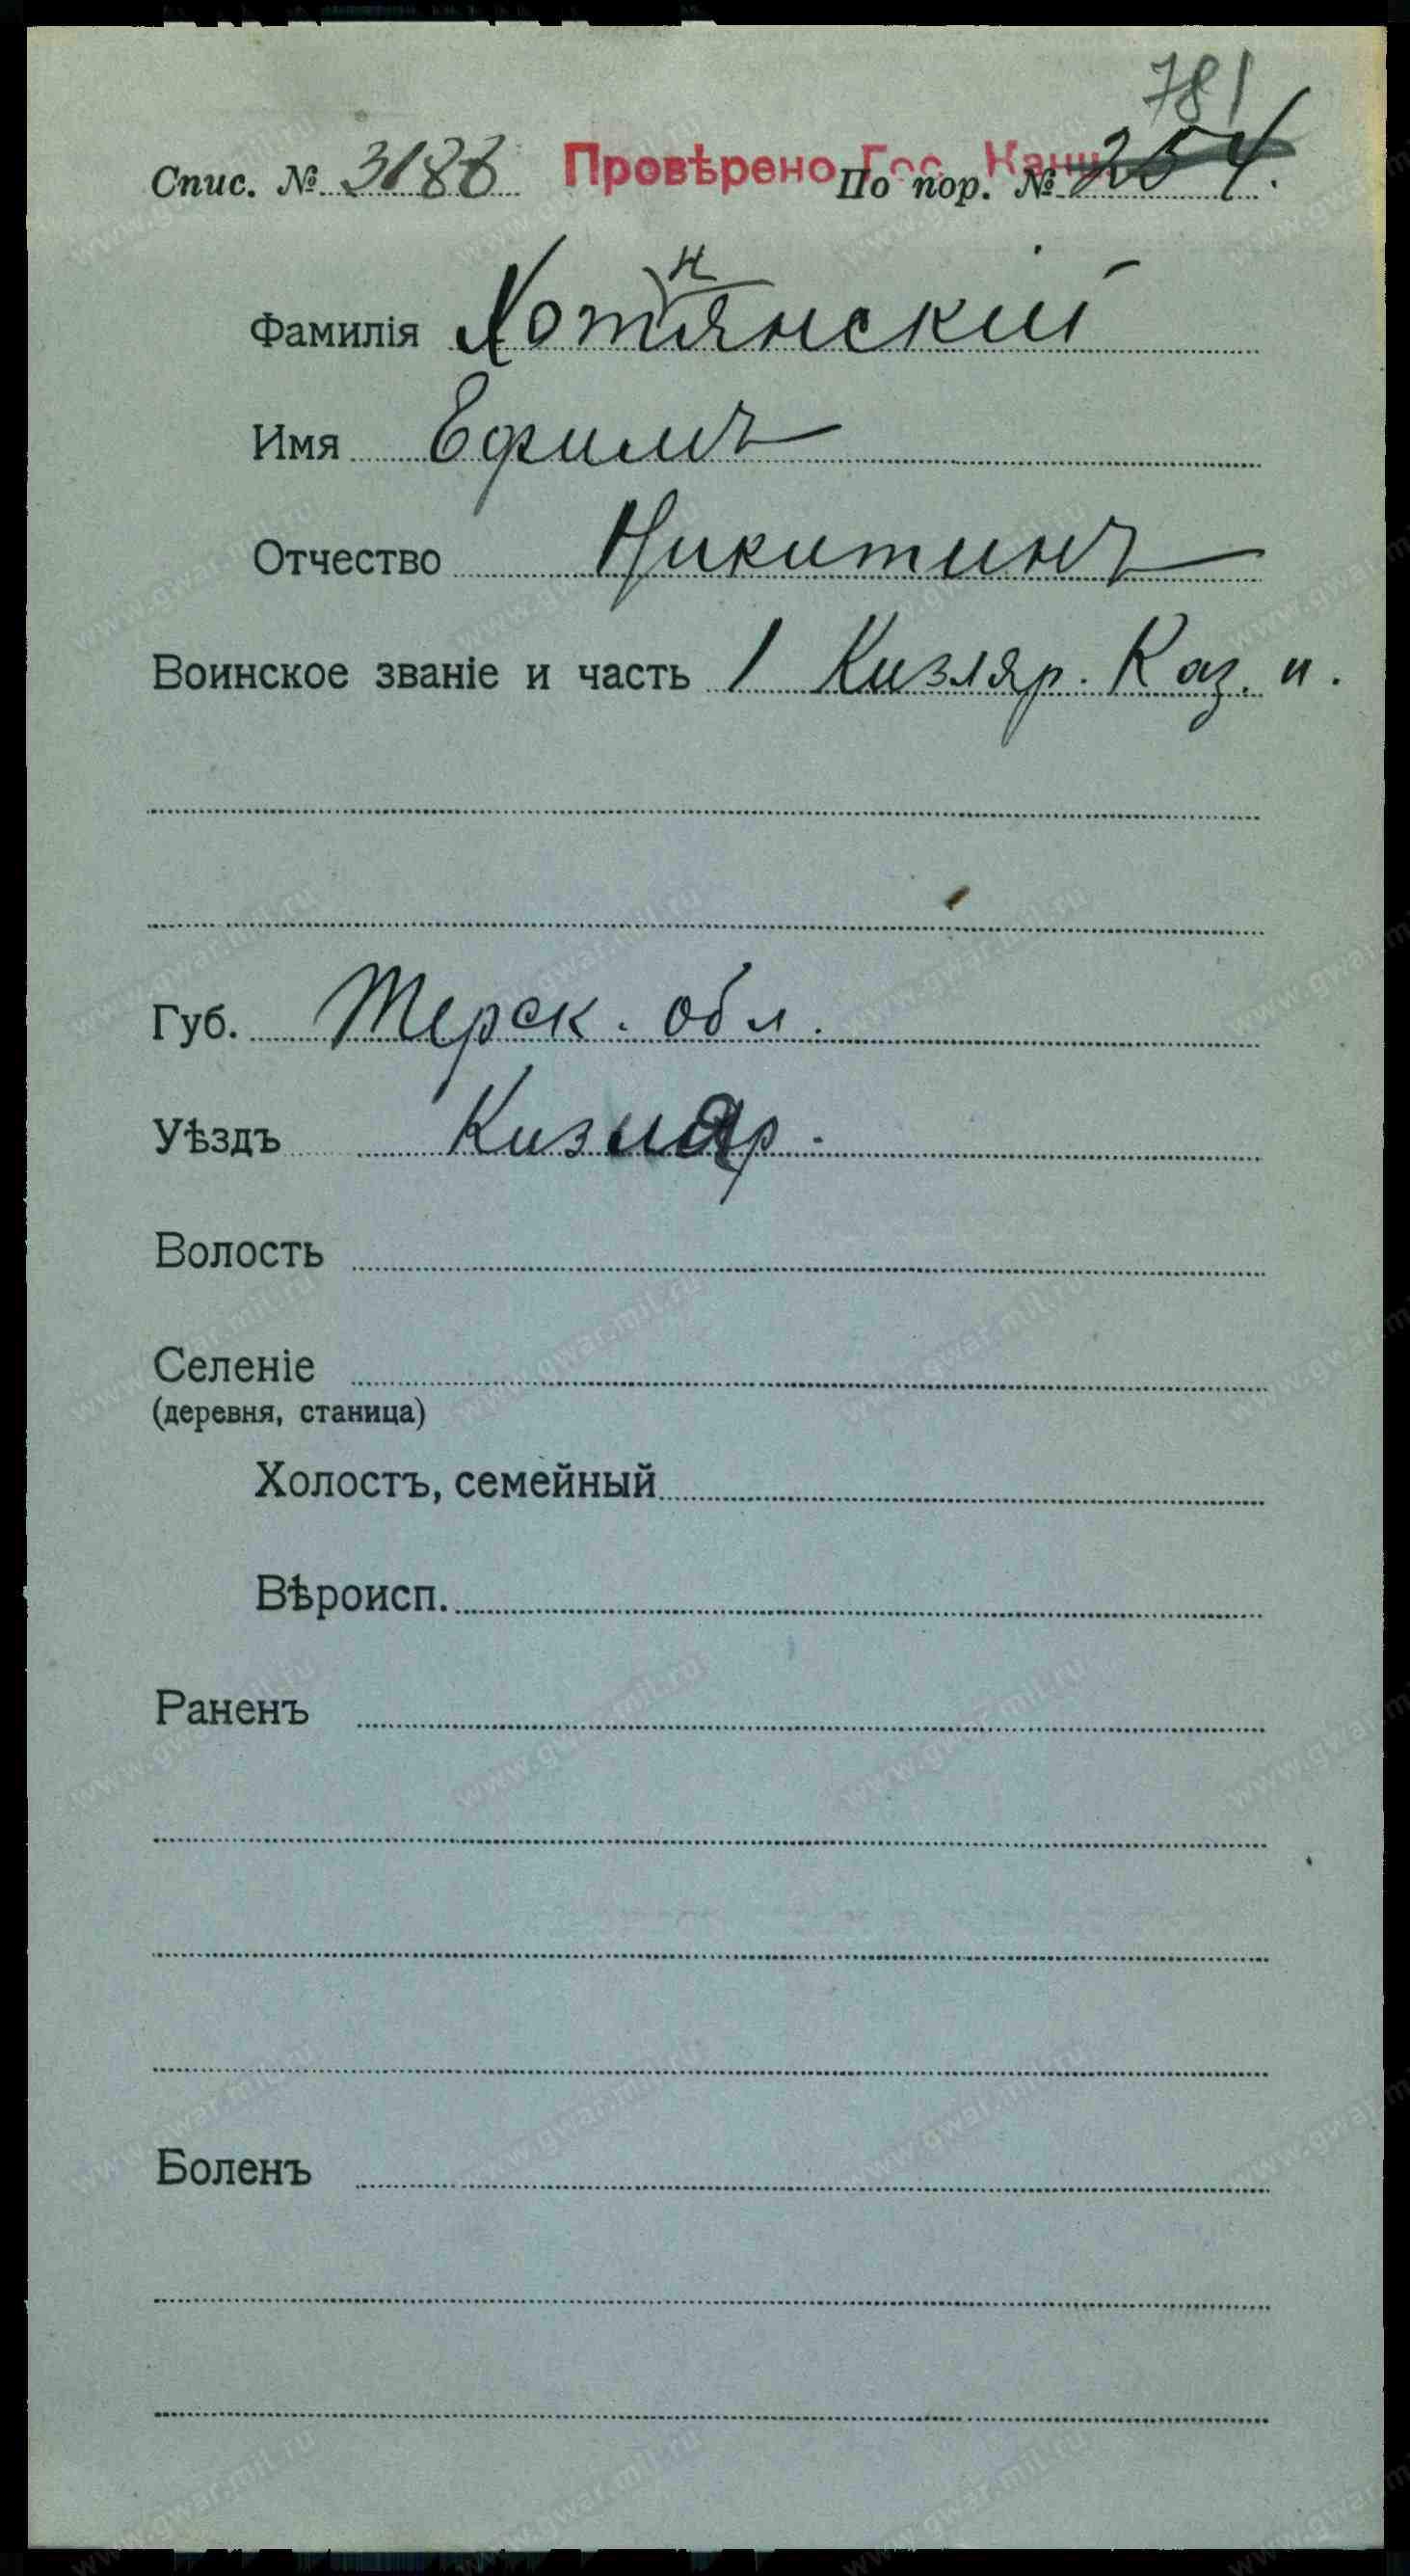 781
Спис. № 3188 Провѣрено Гос. Канц. По пор. № 254.
Фамилія Хотнянскій
Имя Ефимъ
Отчество Никитинъ
Воинское званіе и часть 1 Кизляр. Каз. п.
Губ. Терск. обл.
Уѣздъ Кизляр.
Волость
Селеніе
(деревня, станица)
Холостъ, семейный
Вѣроисп.
Раненъ
Боленъ